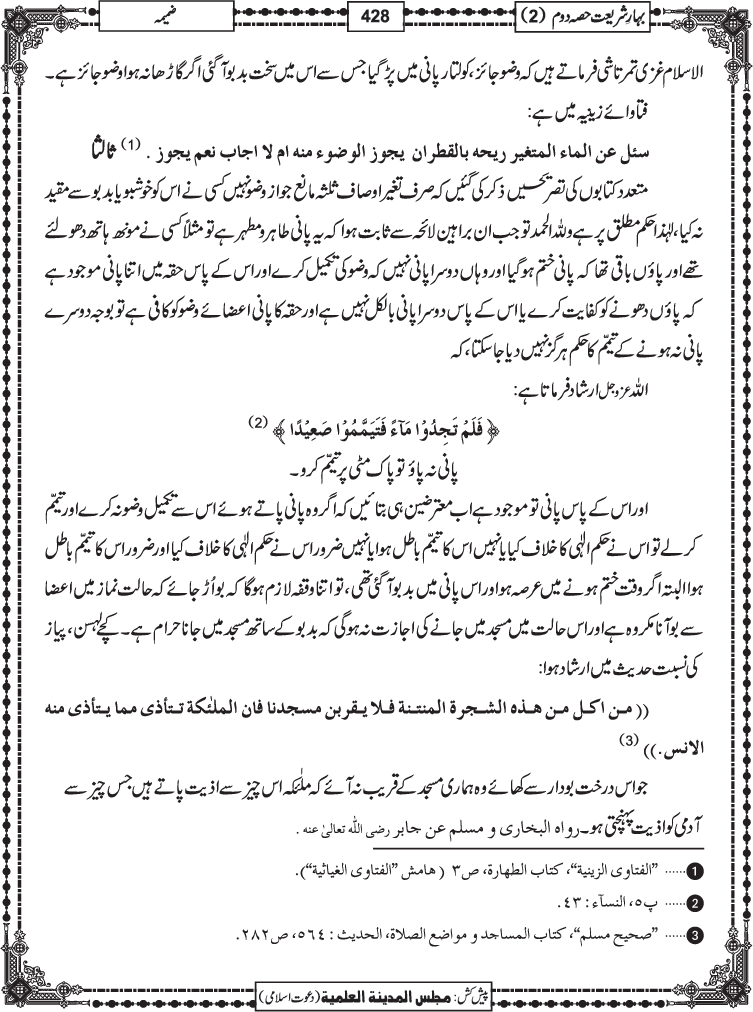 بہار شریعت حصہ دوم (2)
428
ضمیمہ
الاسلام غزی تمرتاشی فرماتے ہیں کہ وضو جائز، کولتار پانی میں پڑ گیا جس سے اس میں سخت بدبو آگئی اگر گاڑھا نہ ہوا وضو جائز ہے۔
فتاوائے زینیہ میں ہے:
سئل عن الماء المتغير ريحه بالقطران يجوز الوضوء منه ام لا اجاب نعم يجوز . (1) ثالثاً
متعدد کتابوں کی تصریحیں ذکر کی گئیں کہ صرف تغیر اوصاف ثلثہ مانع جواز وضو نہیں کسی نے اس کو خوشبو یا بدبو سے مقید
نہ کیا، لہٰذا حکم مطلق پر ہے وللہ الحمد تو جب ان براہین لائحہ سے ثابت ہوا کہ یہ پانی طاہر و مطہر ہے تو مثلاً کسی نے مونھ ہاتھ دھولئے
تھے اور پاؤں باقی تھا کہ پانی ختم ہوگیا اور وہاں دوسرا پانی نہیں کہ وضو کی تکمیل کرے اور اس کے پاس حقہ میں اتنا پانی موجود ہے
کہ پاؤں دھونے کو کفایت کرے یا اس کے پاس دوسرا پانی بالکل نہیں ہے اور حقہ کا پانی اعضائے وضو کو کافی ہے تو بوجہ دوسرے
پانی نہ ہونے کے تیمّم کا حکم ہرگز نہیں دیا جاسکتا، کہ
اللہ عزوجل ارشاد فرماتا ہے:
﴿ فَلَمْ تَجِدُوْا مَآءً فَتَيَمَّمُوْا صَعِيْدًا ﴾ (2)
پانی نہ پاؤ تو پاک مٹی پر تیمّم کرو۔
اور اس کے پاس پانی تو موجود ہے اب معترضین ہی بتائیں کہ اگر وہ پانی پاتے ہوئے اس سے تکمیل وضو نہ کرے اور تیمّم
کرلے تو اس نے حکم الٰہی کا خلاف کیا یا نہیں اس کا تیمّم باطل ہوا یا نہیں ضرور اس نے حکم الٰہی کا خلاف کیا اور ضرور اس کا تیمّم باطل
ہوا البتہ اگر وقت ختم ہونے میں عرصہ ہو اور اس پانی میں بدبو آگئی تھی، تو اتنا وقفہ لازم ہوگا کہ بو اُڑ جائے کہ حالت نماز میں اعضا
سے بو آنا مکروہ ہے اور اس حالت میں مسجد میں جانے کی اجازت نہ ہوگی کہ بدبو کے ساتھ مسجد میں جانا حرام ہے۔ کچے لہسن، پیاز
کی نسبت حدیث میں ارشاد ہوا:
(( من اكل من هذه الشجرة المنتنة فلا يقربن مسجدنا فان الملئكة تتأذى مما يتأذى منه
الانس.)) (3)
جو اس درخت بودار سے کھائے وہ ہماری مسجد کے قریب نہ آئے کہ ملٰئکہ اس چیز سے اذیت پاتے ہیں جس چیز سے
آدمی کو اذیت پہنچتی ہو۔ رواه البخاری و مسلم عن جابر رضی الله تعالیٰ عنه .
1 ...... ”الفتاوی الزینیة“، کتاب الطهارة، ص٣ ( هامش ”الفتاوی الغیاثیة“).
2 ...... پ٥، النسآء : ٤٣.
3 ...... ”صحیح مسلم“، کتاب المساجد و مواضع الصلاة، الحدیث : ٥٦٤، ص٢٨٢.
پیش کش: مجلس المدینة العلمیة (دعوت اسلامی)